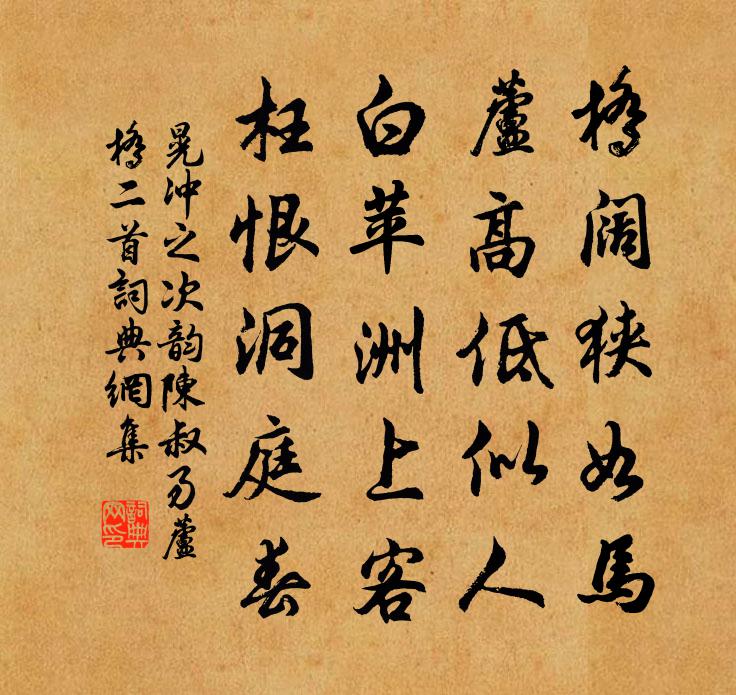 橋闊狹如馬
蘆高低似人
白苹洲上客
枉恨洞庭春
晃沖之次韵陳叔易蘆
橋二首詞典網集
詞典网印